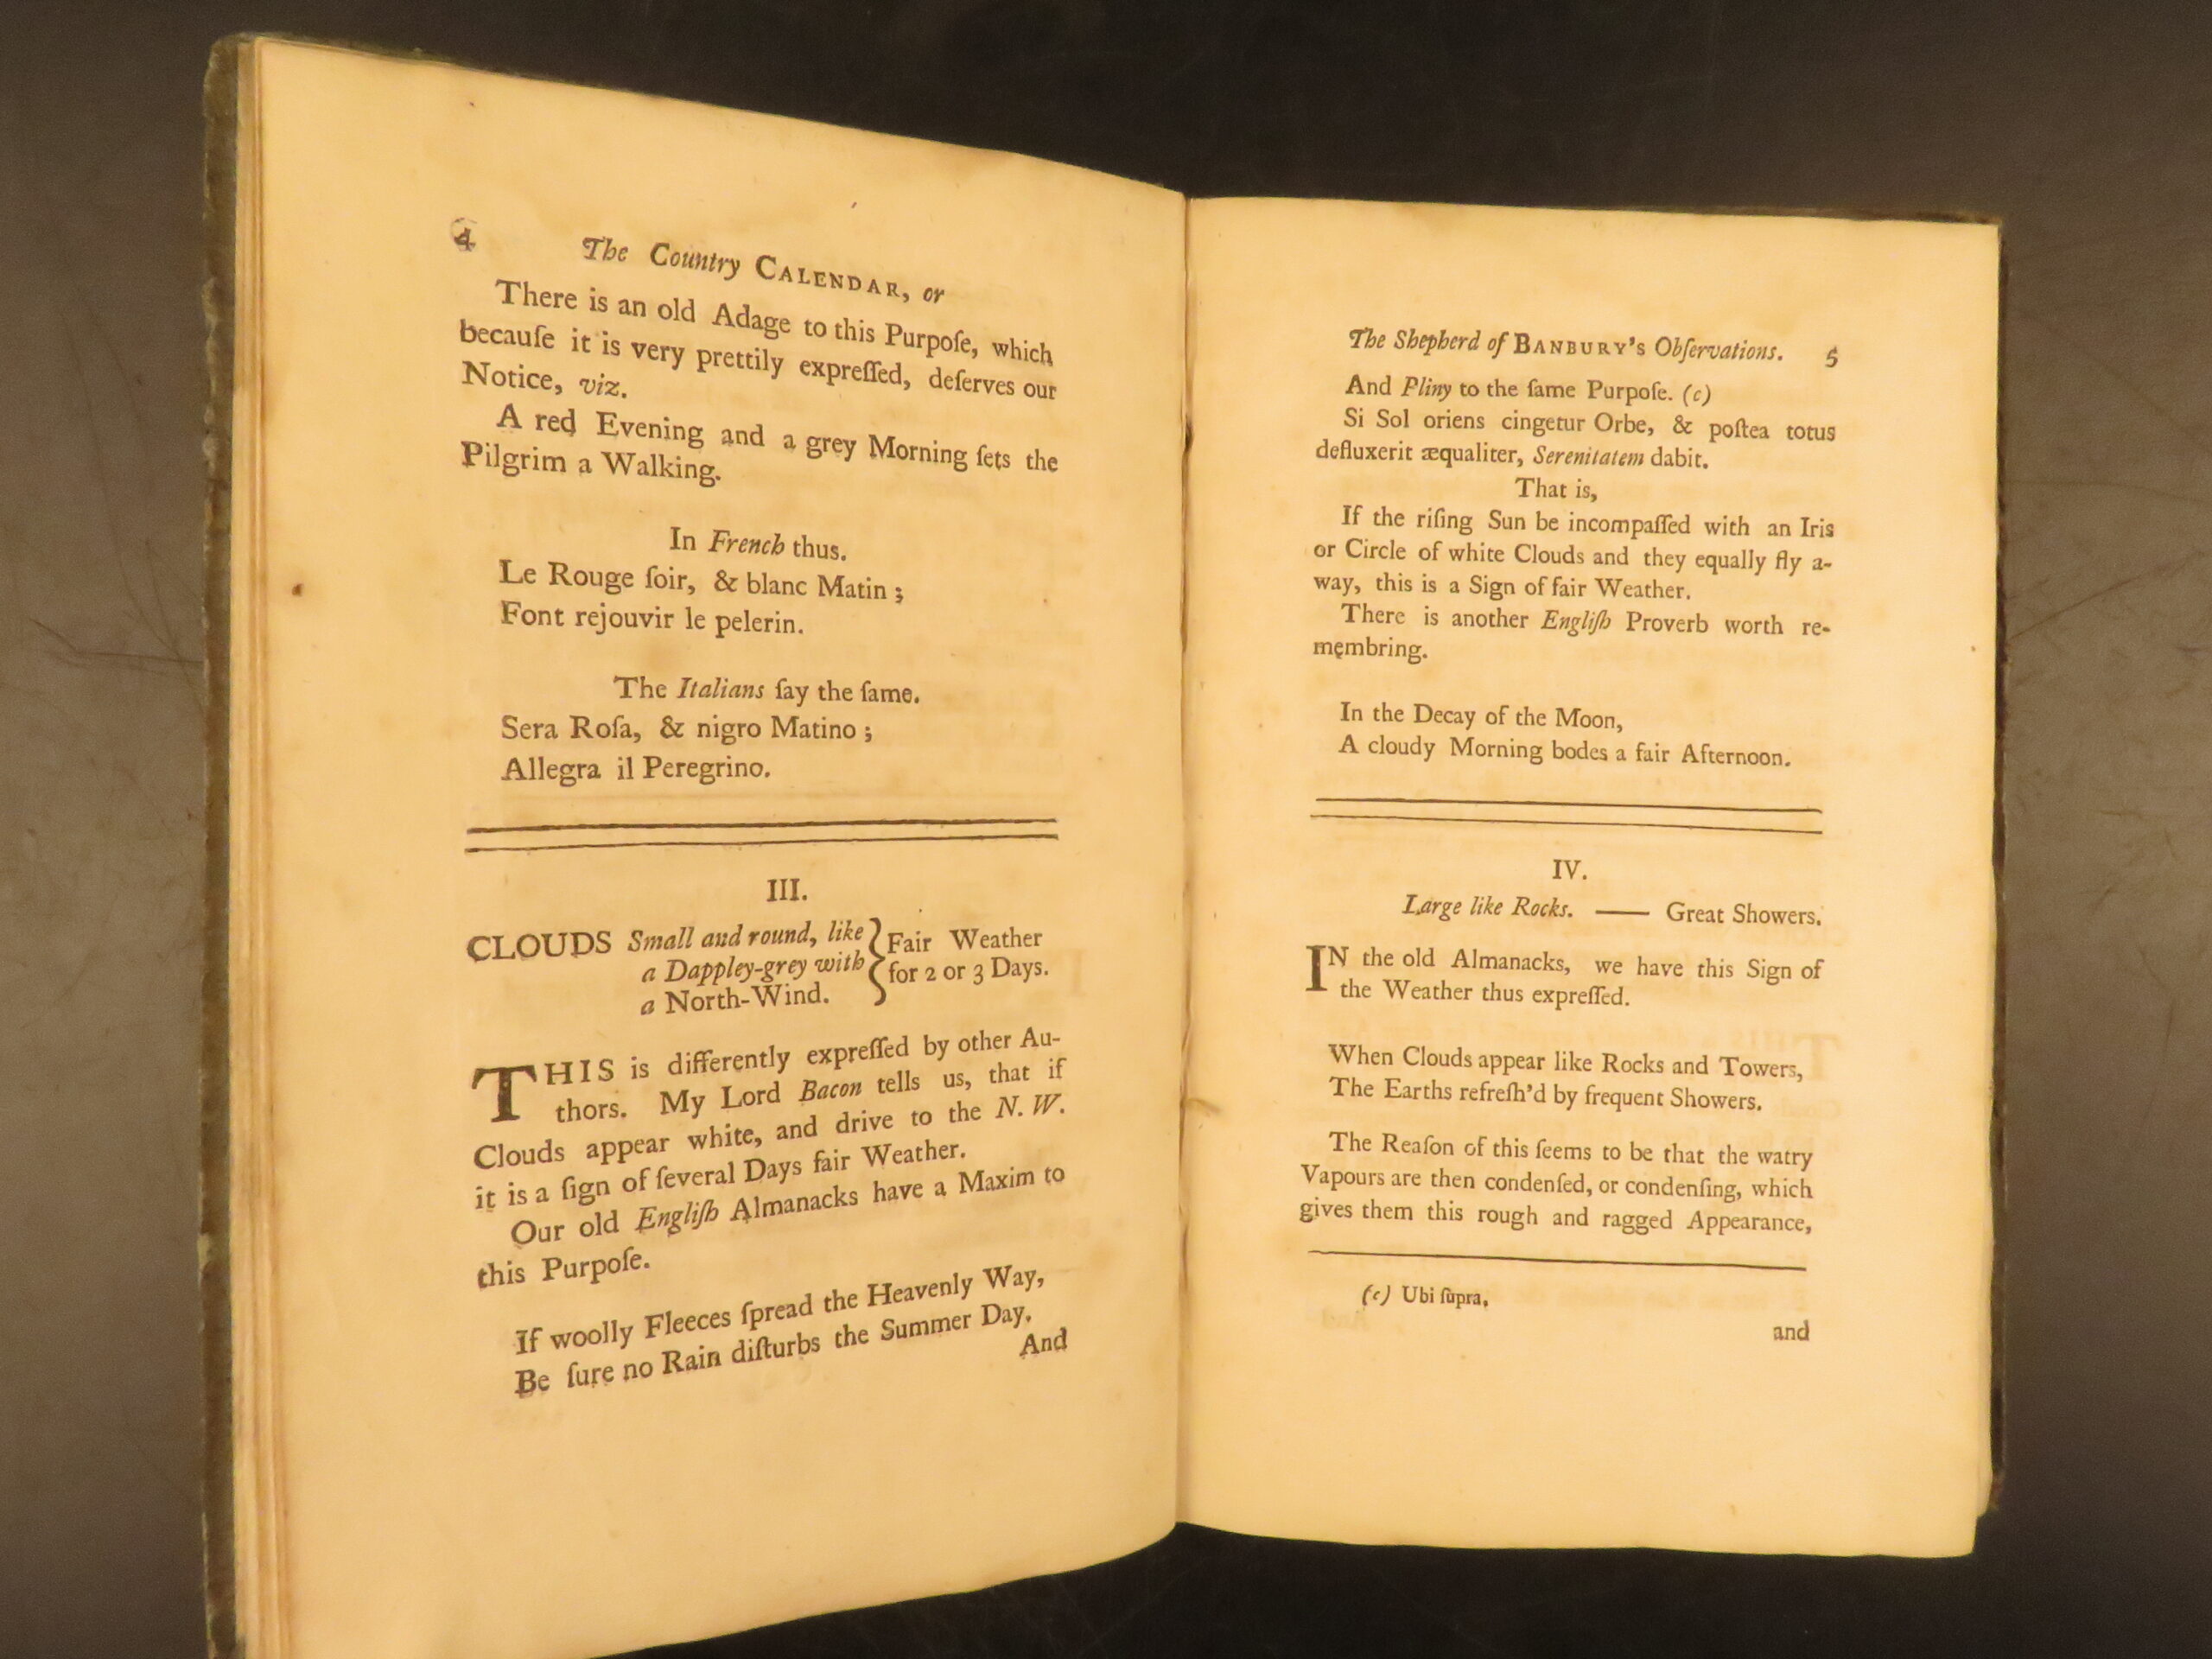 4
The Country CALENDAR, or
There is an old Adage to this Purpoſe, which
becauſe it is very prettily expreſſed, deſerves our
Notice, viz.
A red Evening and a grey Morning ſets the
Pilgrim a Walking.
In French thus.
Le Rouge ſoir, & blanc Matin ;
Font rejouvir le pelerin.
The Italians ſay the ſame.
Sera Roſa, & nigro Matino ;
Allegra il Peregrino.
III.
CLOUDS Small and round, like
a Dappley-grey with
a North-Wind.
} Fair Weather
for 2 or 3 Days.
THIS is differently expreſſed by other Au-
thors. My Lord Bacon tells us, that if
Clouds appear white, and drive to the N. W.
it is a ſign of ſeveral Days fair Weather.
Our old Engliſh Almanacks have a Maxim to
this Purpoſe.
If woolly Fleeces ſpread the Heavenly Way,
Be ſure no Rain diſturbs the Summer Day.
And
The Shepherd of BANBURY'S Obſervations. 5
And Pliny to the ſame Purpoſe. (c)
Si Sol oriens cingetur Orbe, & poſtea totus
defluxerit æqualiter, Serenitatem dabit.
That is,
If the riſing Sun be incompaſſed with an Iris
or Circle of white Clouds and they equally fly a-
way, this is a Sign of fair Weather.
There is another Engliſh Proverb worth re-
membring.
In the Decay of the Moon,
A cloudy Morning bodes a fair Afternoon.
IV.
Large like Rocks. — Great Showers.
IN the old Almanacks, we have this Sign of
the Weather thus expreſſed.
When Clouds appear like Rocks and Towers,
The Earths refreſh'd by frequent Showers.
The Reaſon of this ſeems to be that the watry
Vapours are then condenſed, or condenſing, which
gives them this rough and ragged Appearance,
(c) Ubi ſupra.
and